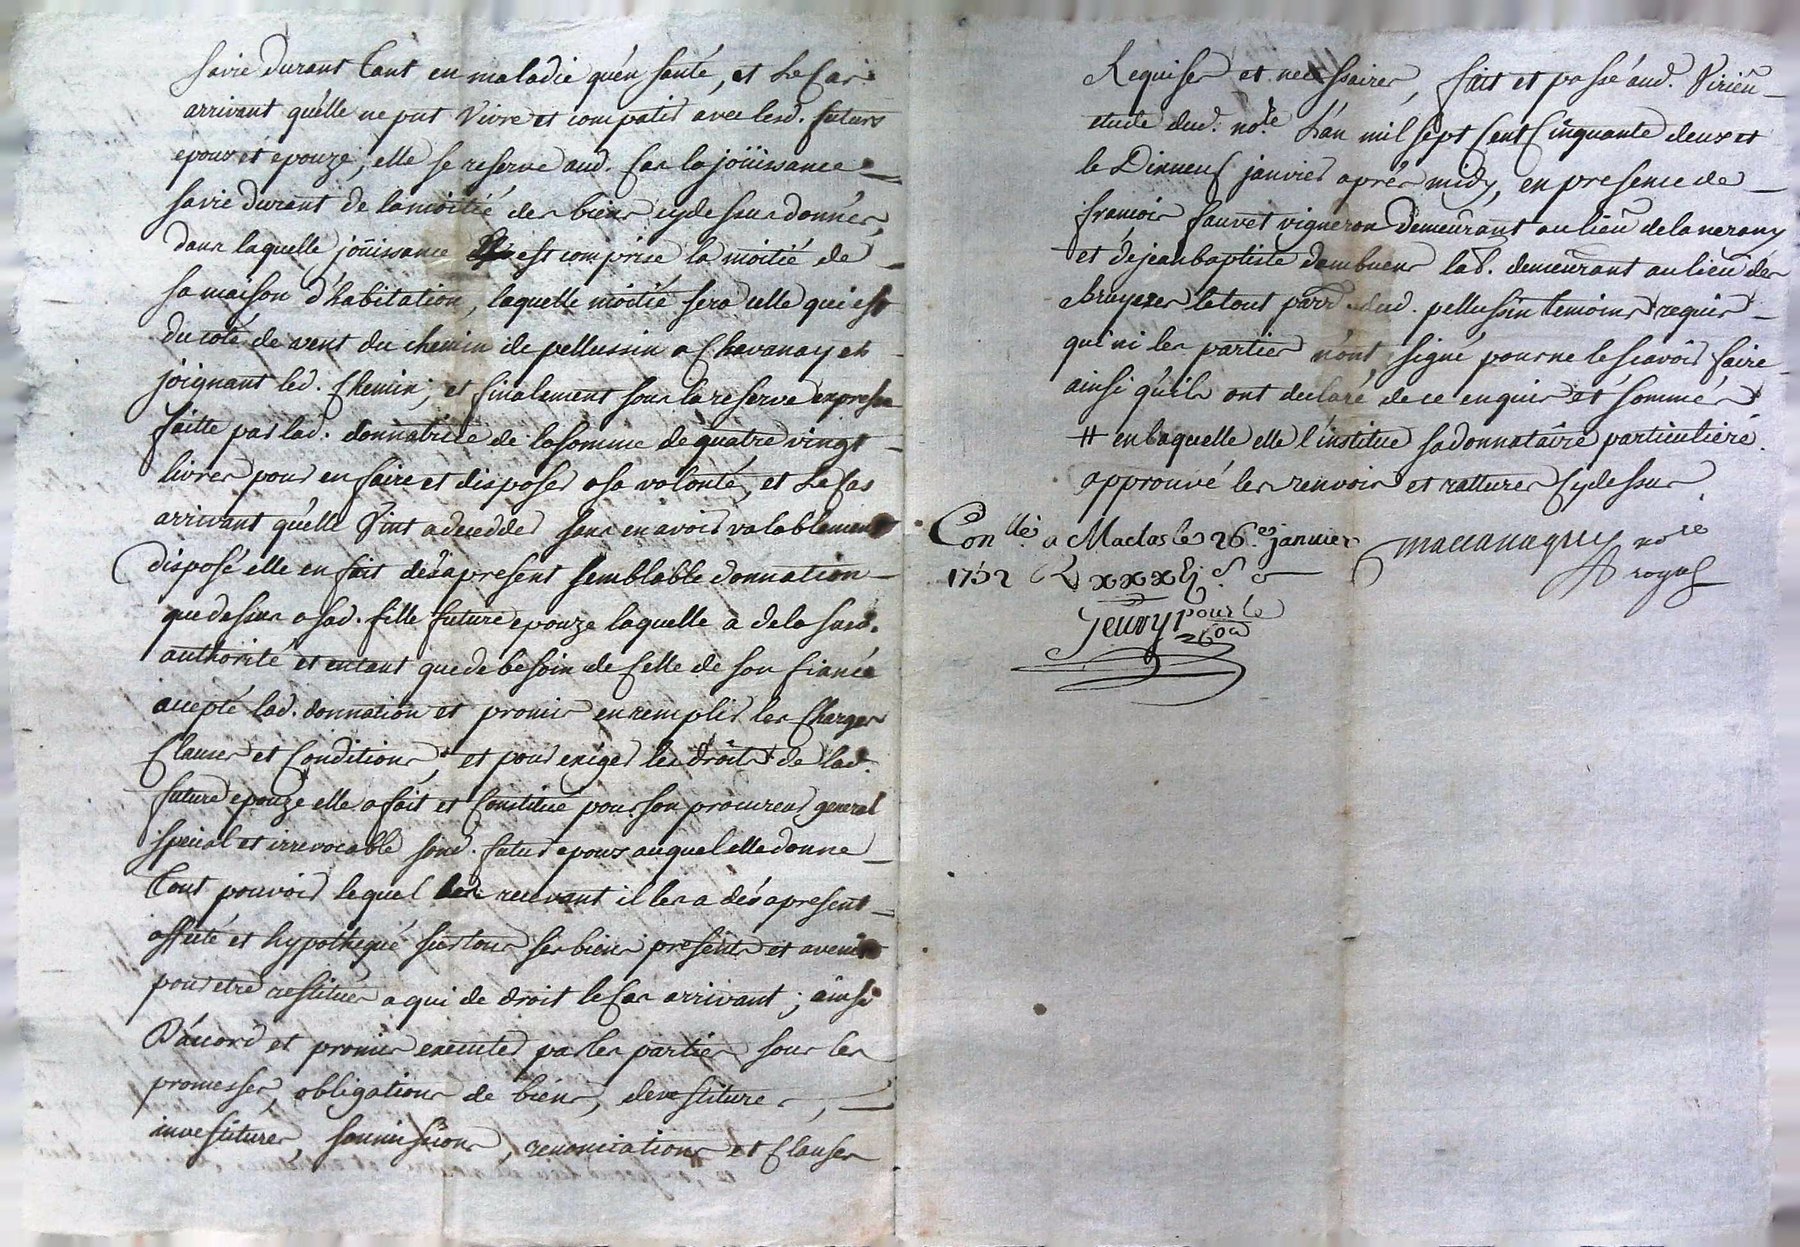 savie durant tant en maladie qu'en santé, et le cas
arrivant qu'elle ne put vivre et compatir avec lesd. futurs
epoux et epouze, elle se reserve aud. cas la joüissance
savie durant de la moitié des biens cy dessus donnés,
dans laquelle joüissance est comprise la moitié de
sa maison d'habitation, laquelle moitié sera celle qui est
du coté de vent du chemin de pellussin a Chavanay et
joignant led. Chemin; et finalement sous la reserve expresse
faitte par lad. donnatrice de la somme de quatre vingt
livres pour en faire et disposer a sa volonté, et le cas
arrivant qu'elle vint a decedder sans en avoir valablement
disposé elle en fait dés a present semblable donnation
que dessus a sad. fille future epouze laquelle a de la susd.
authorité et entant que de besoin de celle de son fiancé
accepté lad. donnation et promis en remplir les charges
clauses et conditions, et pour exiger les droits de lad.
future epouze elle a fait et constitué pour son procureur general
special et irrevocable sond. futur epoux auquel elle donne
tout pouvoir lequel les recevant il les a dés a present
affecté et hypothequé sur tous ses biens presents et avenir
pour etre restitués a qui de droit le cas arrivant; ainsi
d'accord et promis executer par les parties sous les
promesses, obligations de biens, devestitures,
investitures, soumissions, renonciations et clauses
Requises et necessaires, fait et passé aud. Virieu
etude dud. no.re L'an mil sept cent cinquante deux et
le dixneuf janvier aprés midy, en presence de
francois fauvet vigneron demeurant au lieu de la nerany
et de jean baptiste dambuens lab. demeurant au lieu des
bruyeres le tout parr. dud. pellussin temoins requis
qui ni les parties n'ont signé pour ne le scavoir faire
ainsi qu'ils ont declaré de ce enquis et sommés
# en laquelle elle l'institue sa donnataire particuliere.
approuvé les renvois et ratures cy dessus.
Con.llé a Maclas le 26.e janvier
1752 R xxxxij s
pour le
no.re
royal